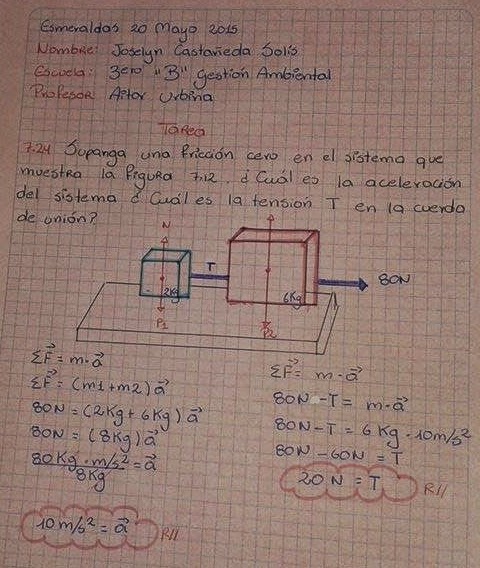 Esmeraldas 20 Mayo 2015
Nombre: Joselyn Castañeda Solís
Escuela: 3ero "B" Gestión Ambiental
Profesor: Aitor Urbina
Tarea
7.24 Supanga una fricción cero en el sistema que
muestra la figura 7.12. ¿Cuál es la aceleración
del sistema ¿Cuál es la tensión T en la cuerda
de unión?
N
T
80N
2Kg
6Kg
P1
P2
ΣF⃗ = m·a⃗
ΣF⃗ = (m1+m2) a⃗
80N = (2Kg + 6Kg) a⃗
80N = (8Kg) a⃗
80 Kg·m/s² / 8Kg = a⃗
10 m/s² = a⃗ R//
ΣF⃗ = m·a⃗
80N - T = m·a⃗
80N - T = 6 Kg · 10m/s²
80N - 60N = T
20 N = T R//